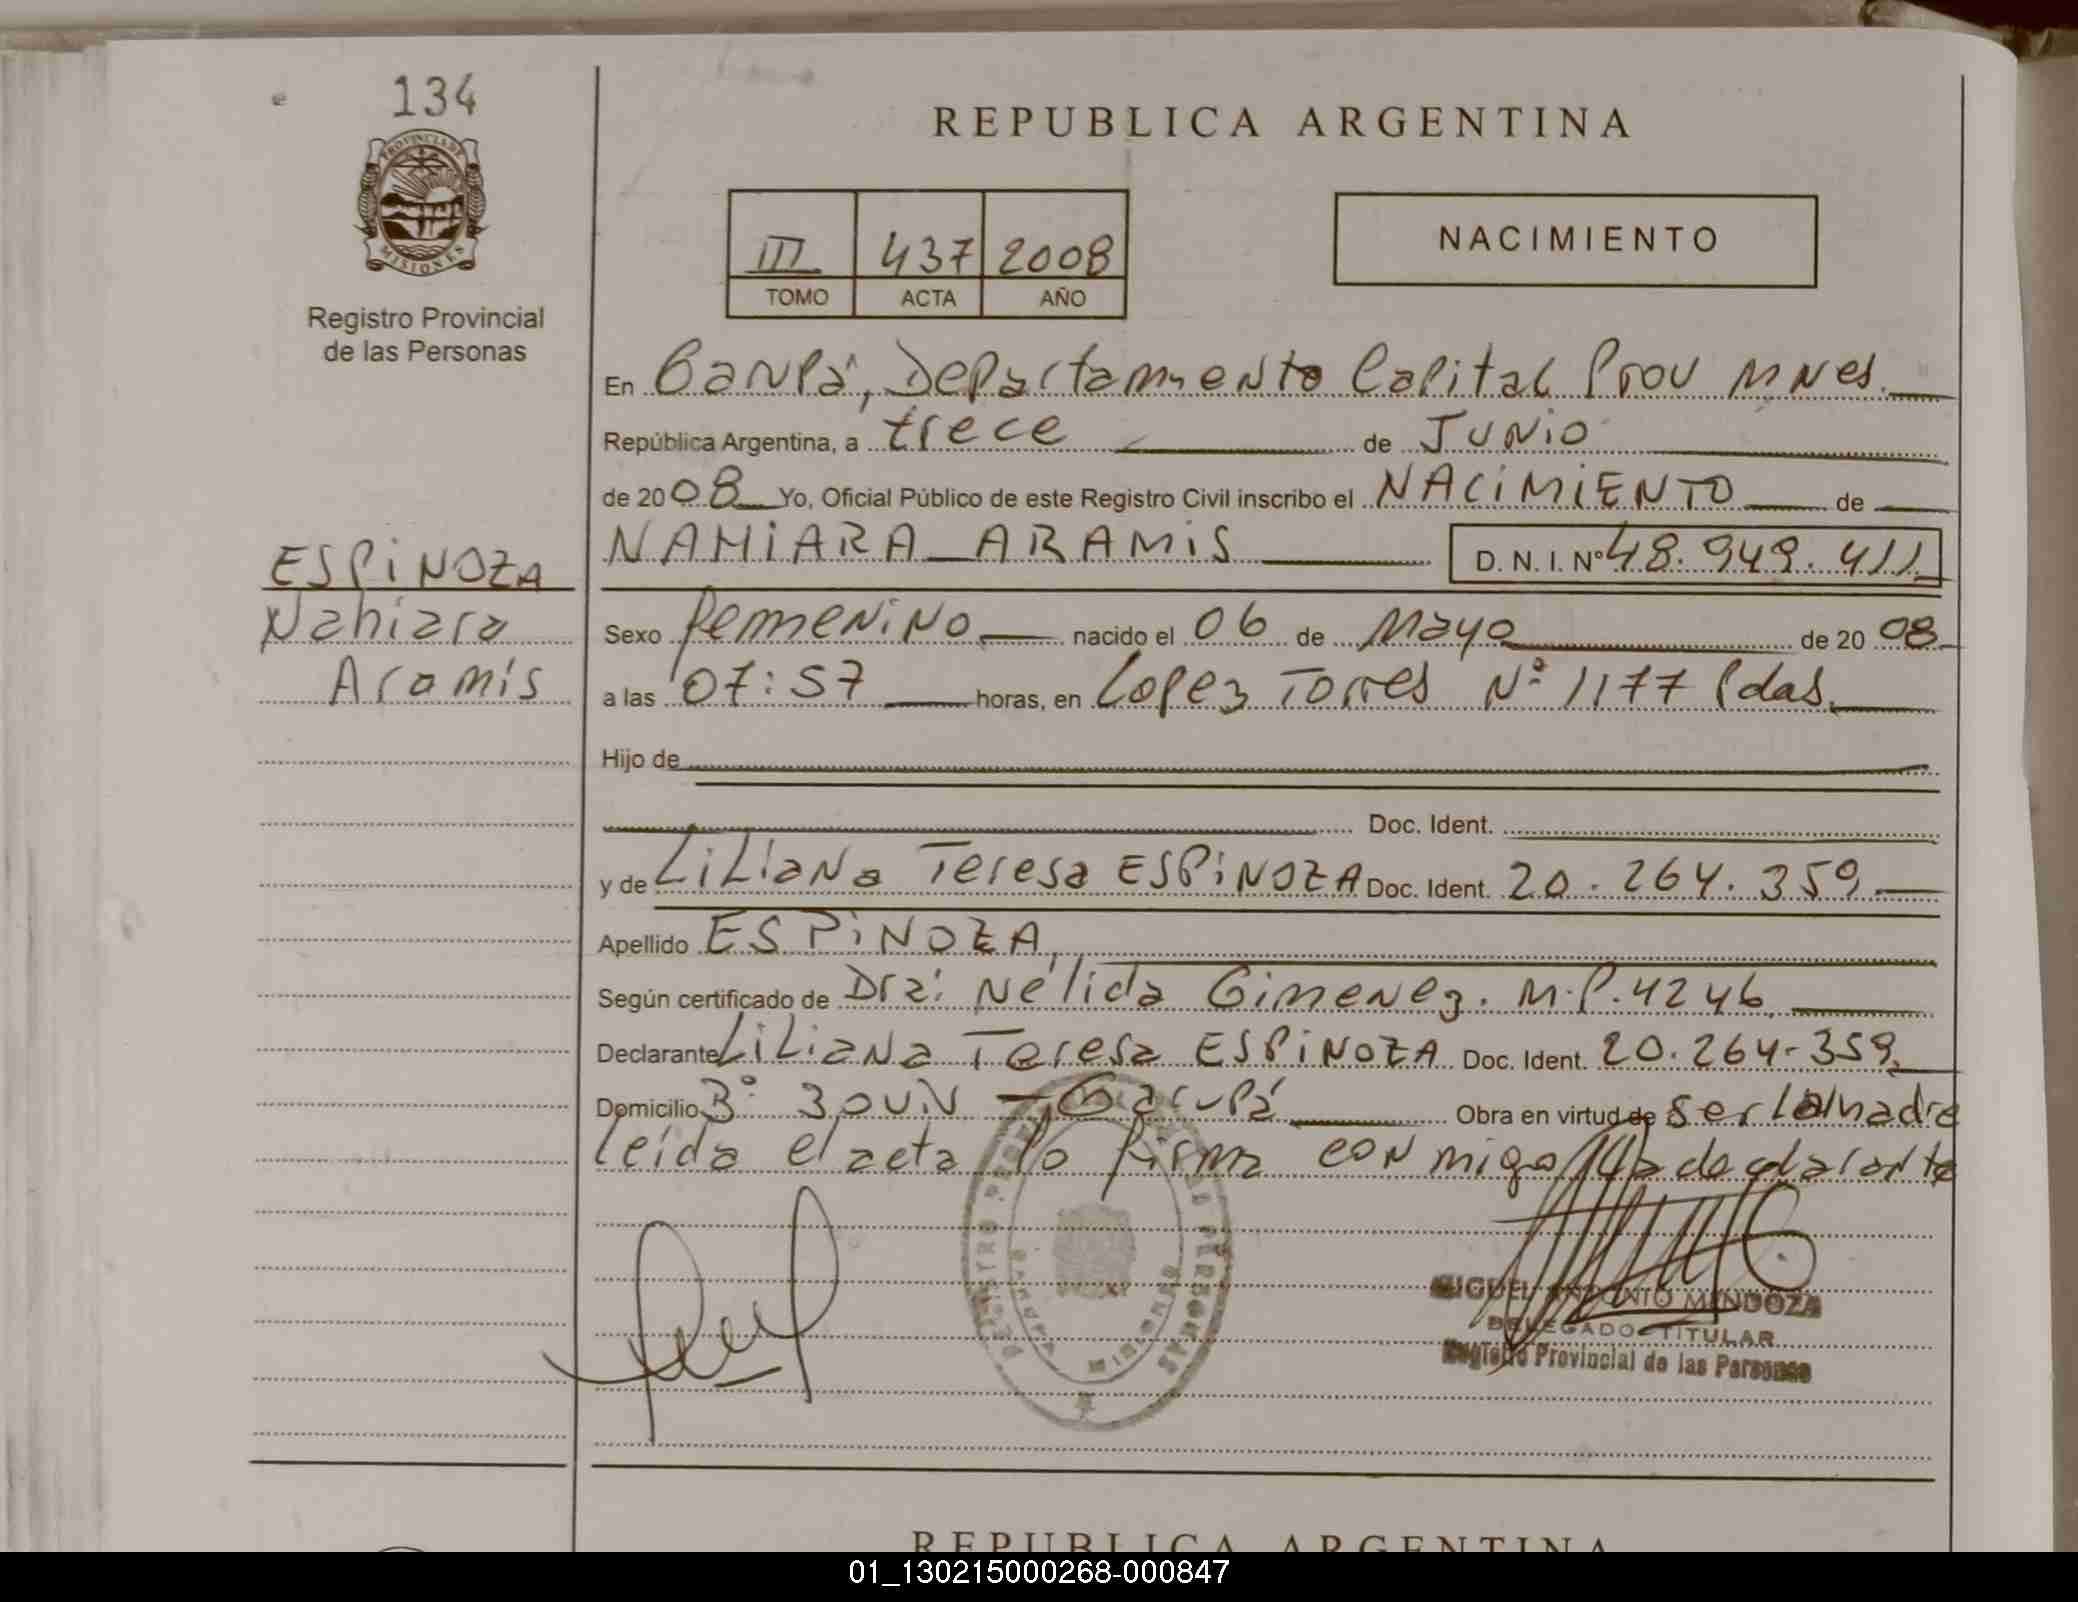 134
PROVINCIA DE
MISIONES
Registro Provincial
de las Personas
ESPINOZA
Nahiara
Aramís
REPUBLICA ARGENTINA
III 437 2008
TOMO ACTA AÑO
NACIMIENTO
En Garupá, Departamento Capital Prov Mnes.
República Argentina, a trece de Junio
de 2008 Yo, Oficial Público de este Registro Civil inscribo el NACIMIENTO de
NAHIARA ARAMIS D. N. I. Nº 48.949.411
Sexo femenino nacido el 06 de Mayo de 20 08
a las 07:57 horas, en Lopez Torres Nº 1177 Pdas.
Hijo de
Doc. Ident.
y de Liliana Teresa ESPINOZA Doc. Ident. 20.264.359
Apellido ESPINOZA
Según certificado de Dra: Nélida Gimenez. M.P. 4246
Declarante Liliana Teresa ESPINOZA Doc. Ident. 20.264-359
Domicilio Bº 30 UV - Garupá Obra en virtud de ser la madre
leída el acta lo firma conmigo la declarante
MIGUEL ANTONIO MENDOZA
DELEGADO TITULAR
Registro Provincial de las Personas
REPUBLICA ARGENTINA
01_130215000268-000847